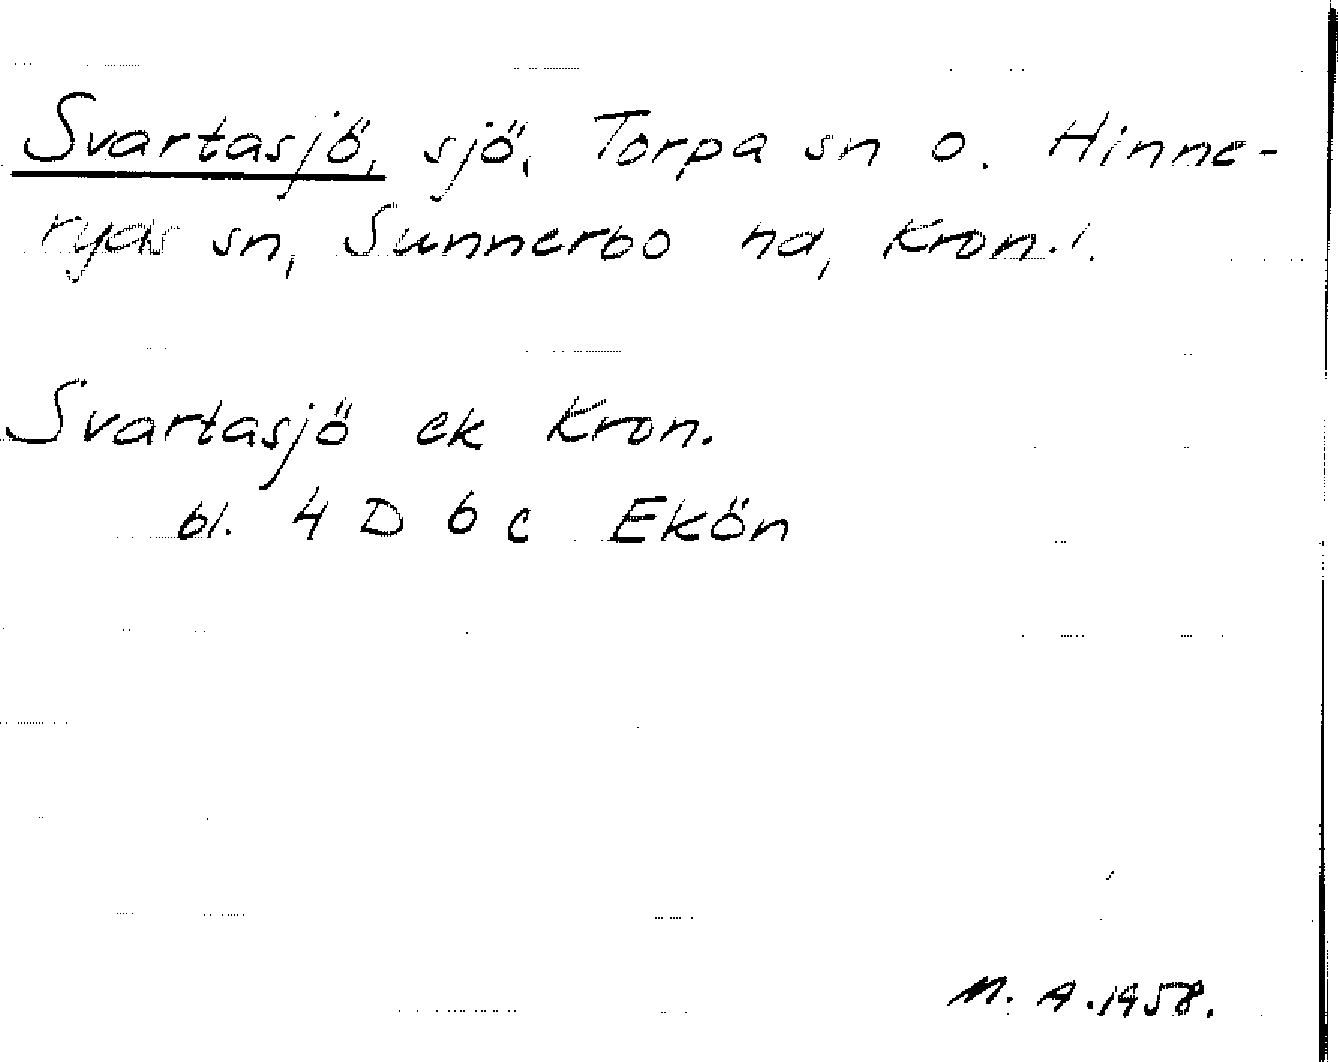 Svartasjö, sjö, Torpa sn o. Hinne-
ryds sn, Sunnerbo hd, Kron. l.
Svartasjö ek Kron.
bl. 4 D 6 c Ekön
M. A. 1958.